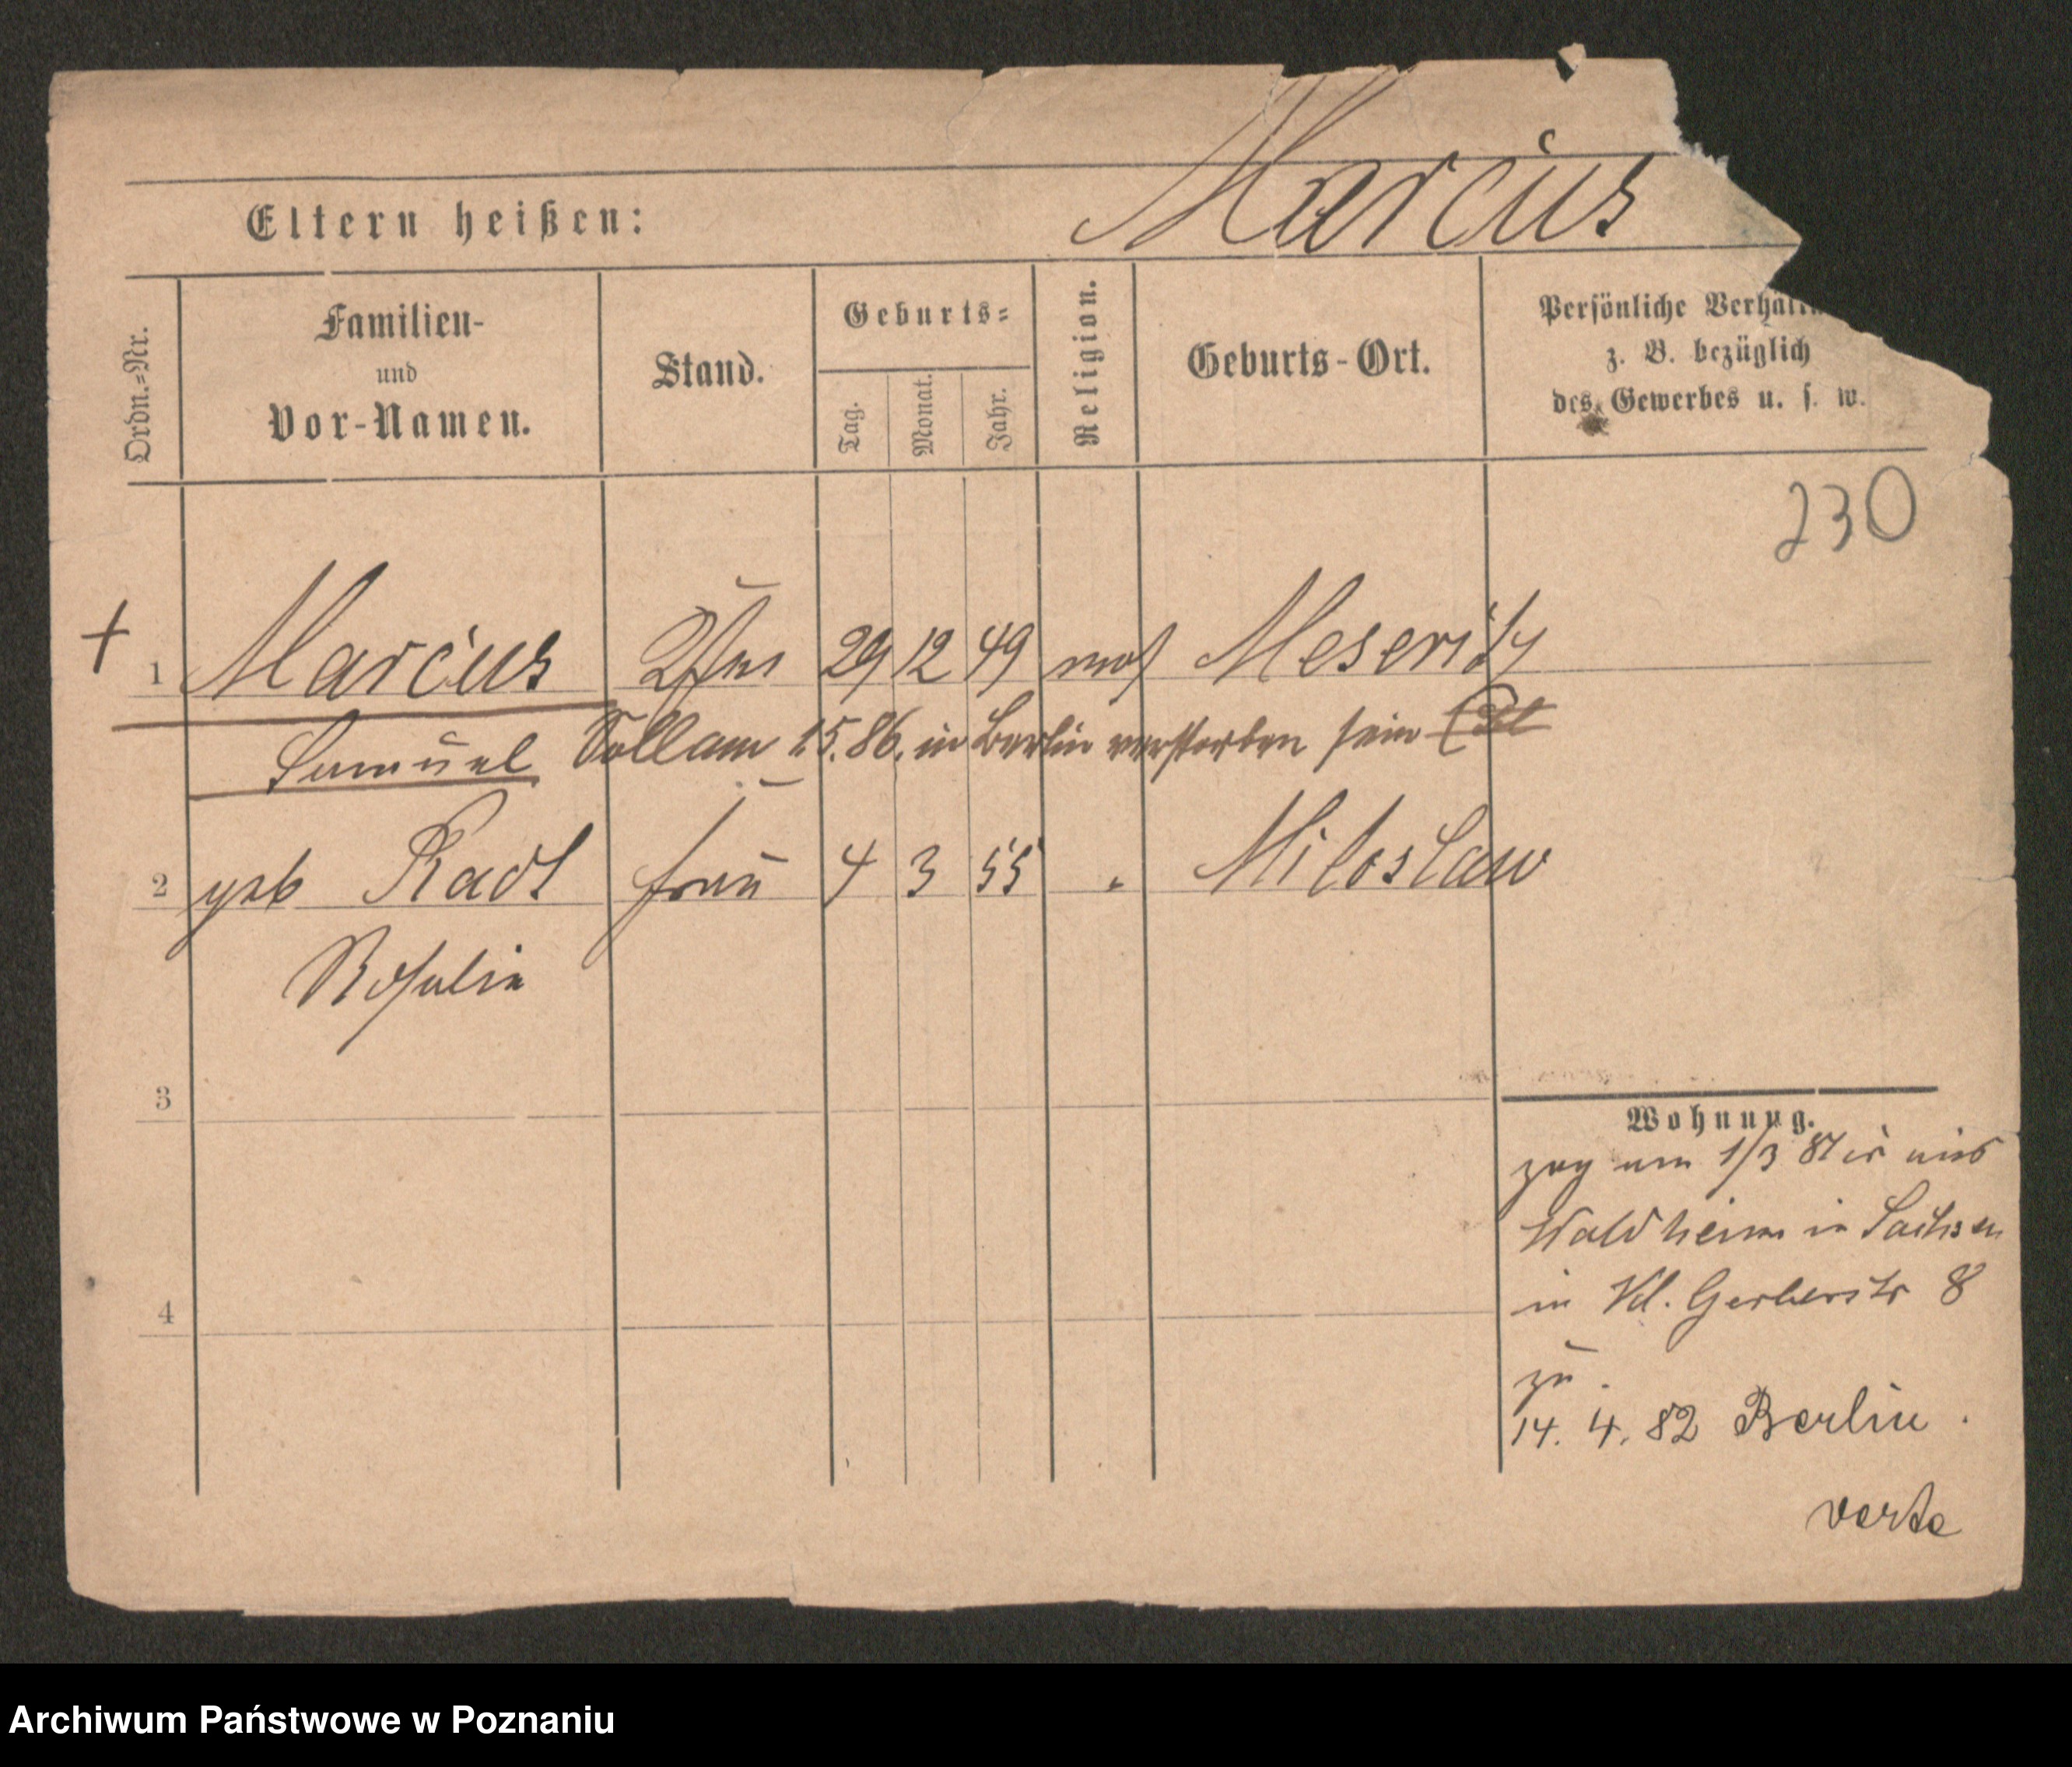 Marcus
Eltern heißen:
Ordn.=Nr.
Familien-
und
Vor-Namen.
Stand.
Geburts=
Tag.
Monat.
Jahr.
Religion.
Geburts-Ort.
Persönliche
z. B. bezüglich
des Gewerbes u. s. w.
230
+
1 Marcus 29 12 49 mos Meseritz
Samuel Soll am 1.5.86. in Berlin verstorben sein
2 geb Radt frau 4 3 55 " Miloslaw
Rosalie
3
4
Wohnung.
zog am 1/3 81 aus
Waldheim in Sachsen
in Kl. Gerberstr 8
zu.
14. 4. 82 Berlin.
verte
Archiwum Państwowe w Poznaniu